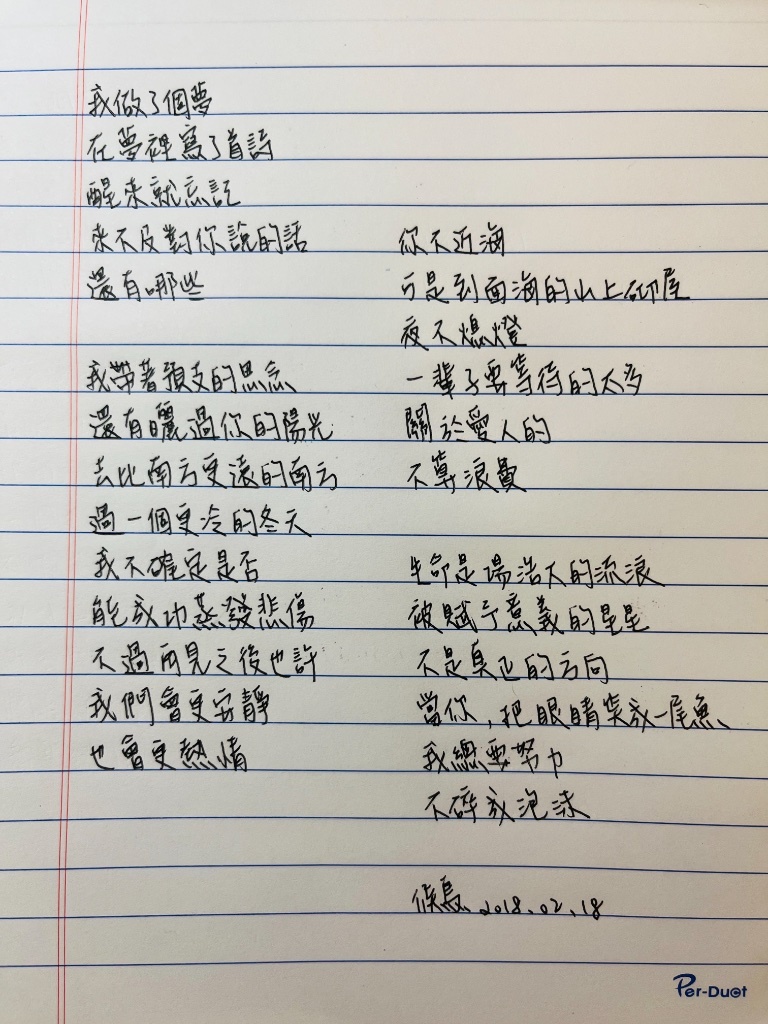 我做了個夢
在夢裡寫了首詩
醒來就忘記
來不及對你說的話
還有哪些
我帶著預支的思念
還有曬過你的陽光
去比南方更遠的南方
過一個更冷的冬天
我不確定是否
能成功蒸發悲傷
不過再見之後也許
我們會更安靜
也會更熱情
你不近海
可是到面海的山上仰屋
夜不熄燈
一輩子要等待的太多
關於愛人的
不算浪費
生命是場浩大的流浪
被賦予意義的星星
不是真正的方向
當你，把眼睛笑成一尾魚
我總要努力
不碎成泡沫
候鳥 2018.02.18
Per-Duet